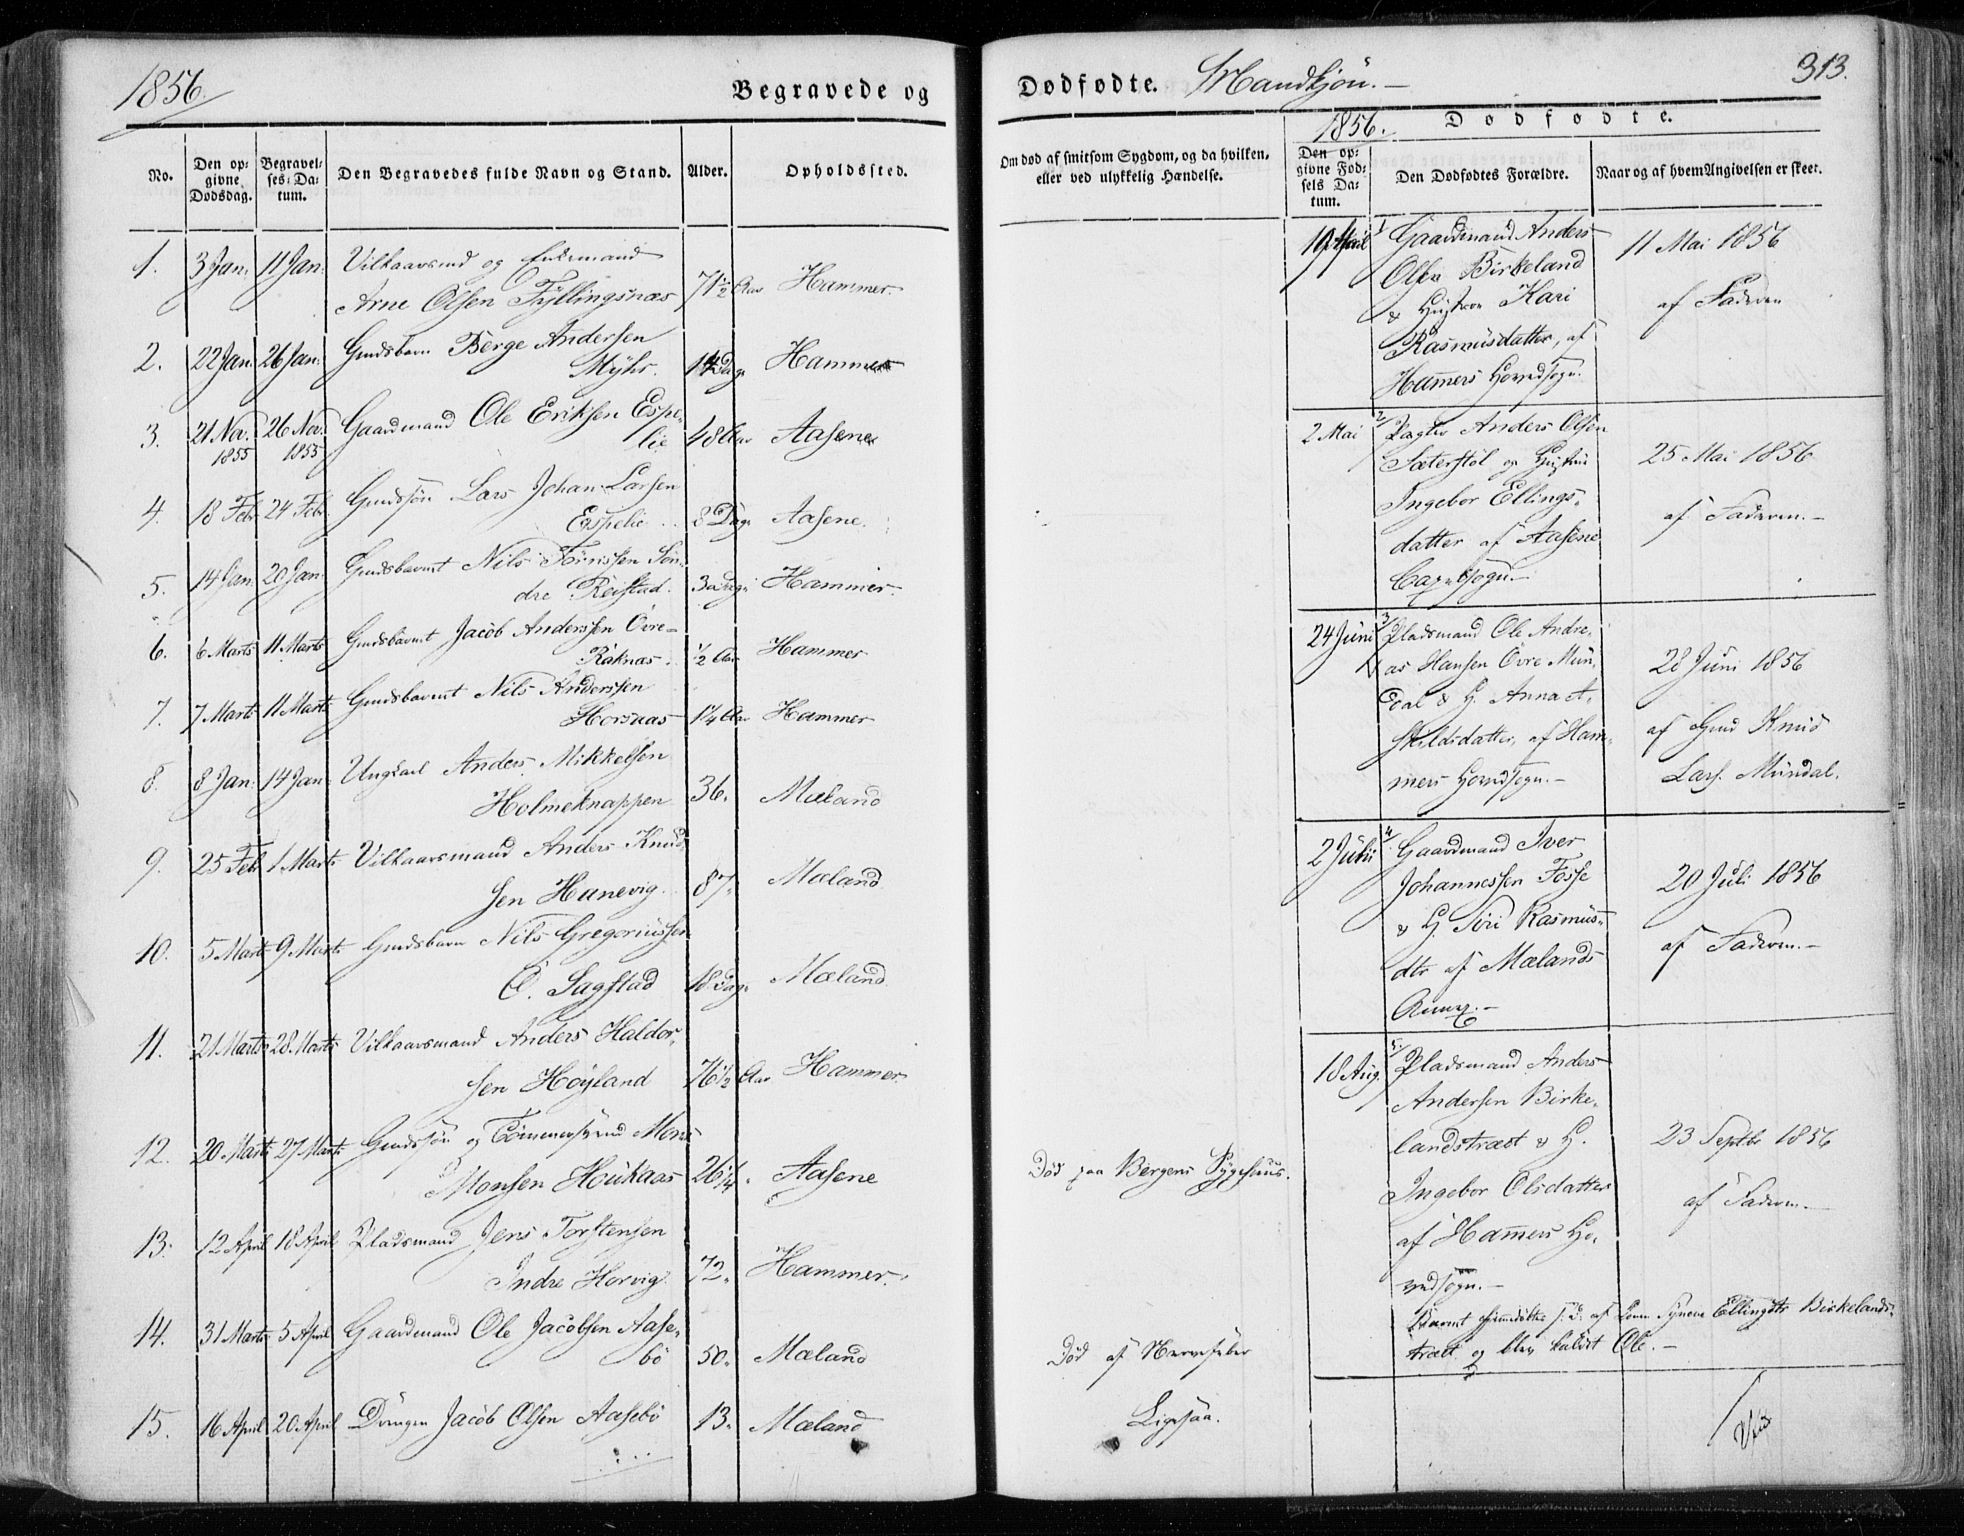 1856.
Begravede og
Dødfødte. Mandkjön.
313.
No.
Den opgivne Dødsdag.
Begravelses-Datum.
Den Begravedes fulde Navn og Stand.
Alder.
Opholdssted.
Om død af smitsom Sygdom, og da hvilken, eller ved ulykkelig Hændelse.
1856. Dødfødte.
Den opgivne Fødsels Datum.
Den Dødfødtes Forældre.
Naar og af hvem Angivelsen er skeet.
1. 3 Jan. 11 Jan. Vilkaarsmd og Enkemand
Arne Olsen Fyllingsnæs 71½ Aar Hammer.
2. 22 Jan. 26 Jan. Gmdsbarn Berge Andersen
Myhr. 14 Dage Hammer
3. 21 Nov. 1855 26 Nov. 1855 Gaardmand Ole Eriksen Espe-
lie 48 Aar Aasene
4. 18 Feb. 24 Feb. Gmdssön Lars Johan Larsen
Espelie 8 Dage Aasene.
5. 14 Jan. 20 Jan. Gmdsbarnet Nils
dre Reistad. 3 Dage Hammer.
6. 6 Marts 11 Marts Gmdsbarnet Jacob Anderssen Övre-
Raknæs. ½ Aar Hammer
7. 7 Marts 11 Marts Gmdsbarnet Nils Anderssen
Horsnæs 1¼ Aar Hammer
8. 8 Jan. 14 Jan. Ungkarl Anders Mikkelsen
Holmeknappen 36. Mæland
9. 25 Feb. 1 Marts Vilkaarsmand Anders Knud-
sen Hanevig. 87. Mæland
10. 5 Marts 9 Marts Gmdsbarn Nils Gregoriussen
Ö. Sagstad 18 Dage Mæland
11. 21 Marts 28 Marts Vilkaarsmand Anders Haldor-
sen Höyland 76½ Aar Hammer.
12. 20 Marts 27 Marts Gmdssön og Tömmersvend Mons
Monsen Houkaas 26¼. Aasene Död paa Bergens Sygehuus.
13. 12 April 18 April Pladsmand Jens Torstensen
Indre Horvig 72. Hammer.
14. 31 Marts 5 April Gaardmand Ole Jacobsen Aase-
bö 50. Mæland Död af Nervefeber
15. 16 April 20 April Drengen Jacob Olsen Aasebö 13. Mæland Ligesaa.
19 April 1/ Gaardmand Anders
Olsen Birkeland
& Hustrue Kari
Rasmusdatter, af
Hamers Hovedsogn.
11 Mai 1856
af Faderen
2 Mai 2/ Pagter Anders Olsen
Sæterstöl og Hustru
Ingebor Ellings-
datter af Aasene
Capelsogn.
25 Mai 1856
af Faderen.
24 Juni 3/ Pladsmand Ole Andre-
as Hansen Övre Mun-
dal & H. Anna A-
skildsdatter, af Ham-
mers Hovedsogn.
28 Juni 1856
af Gmd Knud
Lars. Mundal.
2 Juli 4/ Gaardmand Iver
Johannessen Fosse
& H. Siri Rasmus-
dtr af Mælands
Annex.
20 Juli 1856
af Faderen.
18 Aug. 5/ Pladsmand Anders
Andersen Birke-
landstræet & H.
Ingebor Olsdatter
af Hamers Ho-
vedsogn.
23 Septbr 1856
af Faderen.
Barnet hjemdöbtes af Syneve Ellingsdtr Birkelands-
træet og blev kaldet Ole.